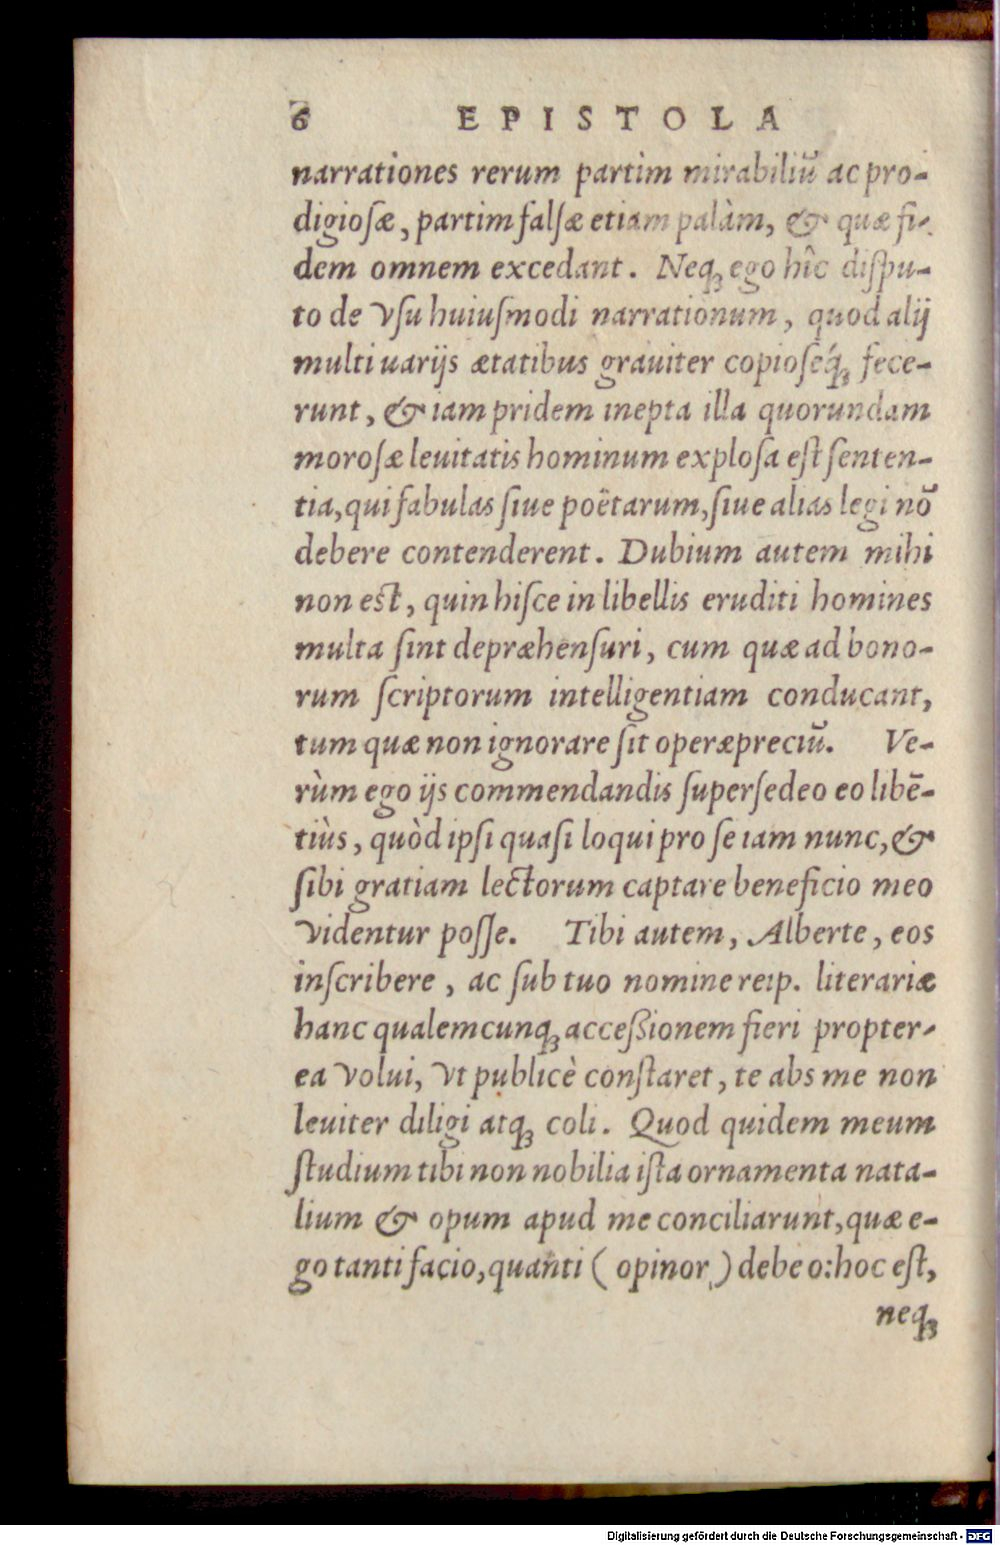 6 EPISTOLA
narrationes rerum partim mirabiliū ac pro-
digioſæ, partim falſæ etiam palàm, & quæ fi-
dem omnem excedant. Neqꝫ ego hîc diſpu-
to de vſu huiuſmodi narrationum, quod alij
multi uarijs ætatibus grauiter copioſeq́ꝫ fece-
runt, & iampridem inepta illa quorundam
moroſæ leuitatis hominum exploſa eſt ſenten-
tia, qui fabulas ſiue poëtarum, ſiue alias legi nō
debere contenderent. Dubium autem mihi
non est, quin hiſce in libellis eruditi homines
multa ſint depræhenſuri, cum quæ ad bono-
rum ſcriptorum intelligentiam conducant,
tum quæ non ignorare ſit operæpreciū. Ve-
rùm ego ijs commendandis ſuperſedeo eo libē-
tiùs, quòd ipſi quaſi loqui pro ſe iam nunc, &
ſibi gratiam lectorum captare beneficio meo
videntur poſſe. Tibi autem, Alberte, eos
inſcribere, ac ſub tuo nomine reip. literariæ
hanc qualemcunqꝫ acceßionem fieri propter-
ea volui, vt publicè conſtaret, te abs me non
leuiter diligi atqꝫ coli. Quod quidem meum
ſtudium tibi non nobilia iſta ornamenta nata-
lium & opum apud me conciliarunt, quæ e-
go tanti facio, quanti (opinor) debeo: hoc eſt,
neqꝫ
Digitalisierung gefördert durch die Deutsche Forschungsgemeinschaft - DFG